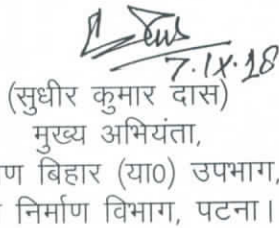 7.IX.18
(सुधीर कुमार दास)
मुख्य अभियंता,
ण बिहार (या0) उपभाग,
निर्माण विभाग, पटना।